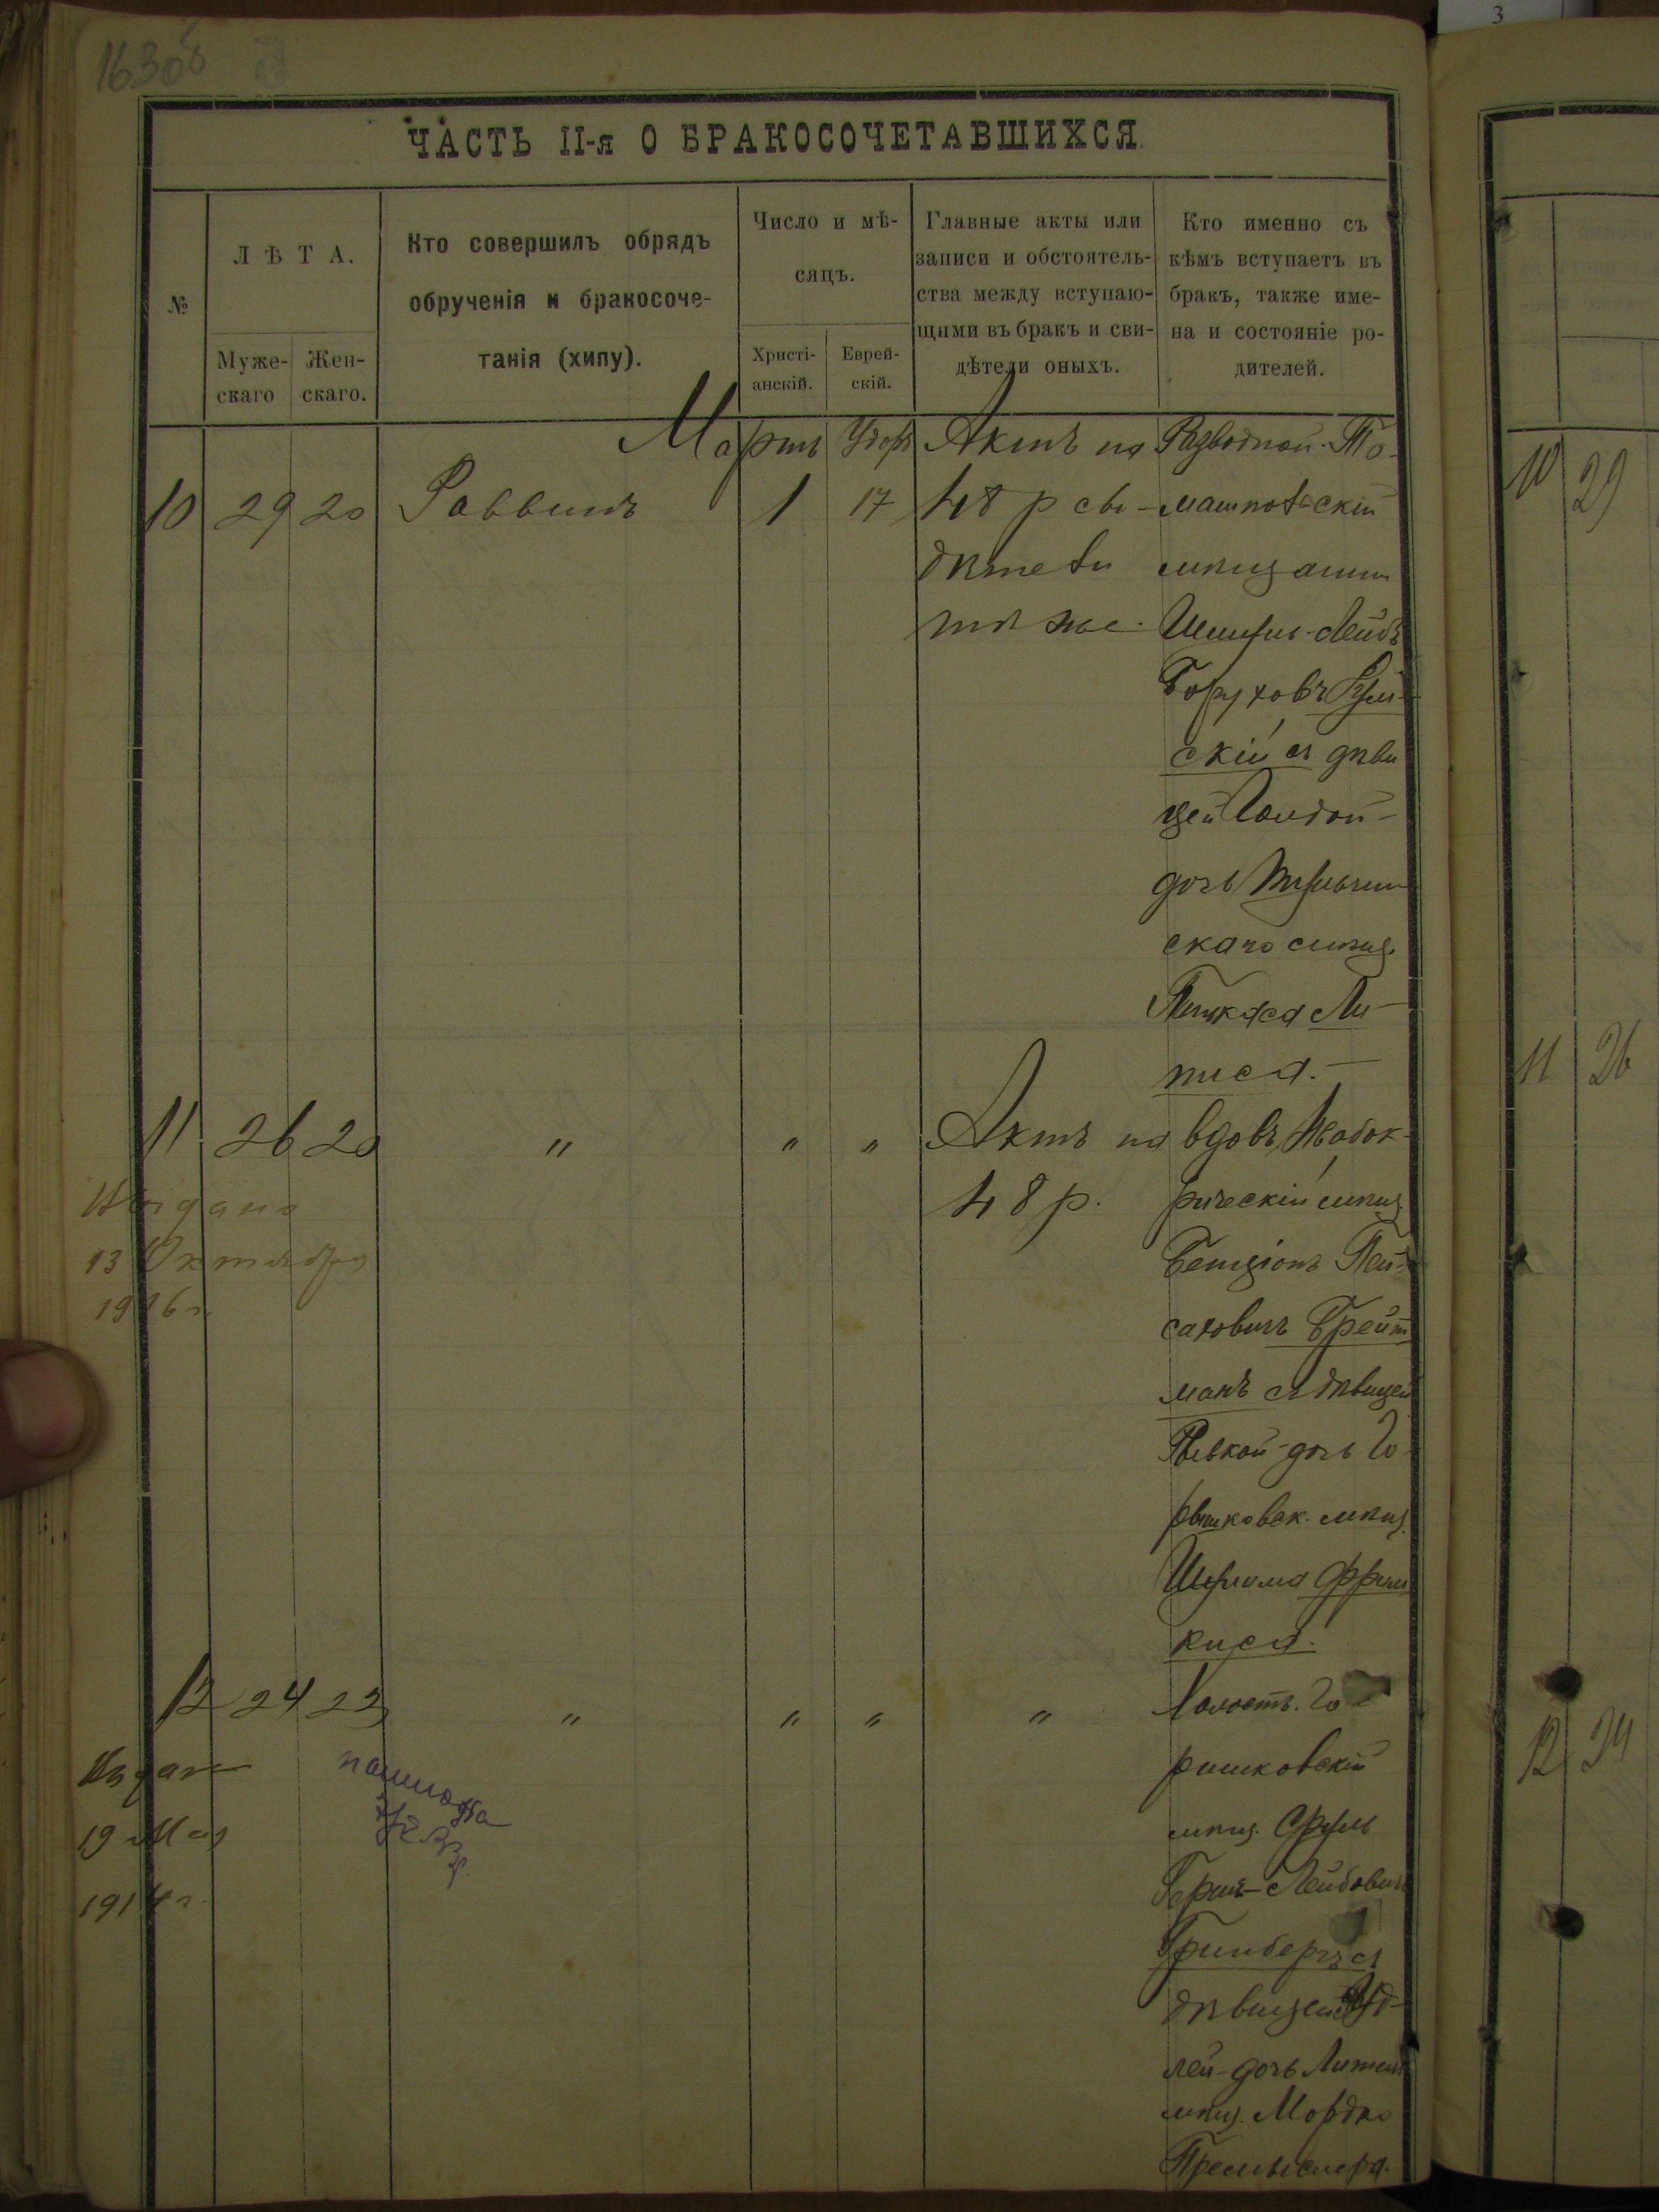 3
163об
ЧАСТЬ II-я О БРАКОСОЧЕТАВШИХСЯ.
№
ЛѢТА.
Муже-
скаго
Жен-
скаго.
Кто совершилъ обрядъ
обрученія и бракосоче-
танія (хипу).
Число и мѣ-
сяцъ.
Христі-
анскій.
Еврей-
скій.
Главные акты или
записи и обстоятель-
ства между вступаю-
щими въ бракъ и сви-
дѣтели оныхъ.
Кто именно съ
кѣмъ вступаетъ въ
бракъ, также име-
на и состояніе ро-
дителей.
10 29 20 Раввинъ
Мартъ
1
17
Актъ на
48 р сви-
дѣтели
тѣ же.
Разводной То-
машпольскій
мѣщанинъ
Лейбъ
Боруховъ
скій съ дѣви
цей Голдой
дочь
скаго мѣщ.
Пинкаса Ли-
писа.
11 26 20 " " "
Актъ на
48 р.
вдовъ Жабок-
рическій мѣщ
Бенціонъ Пей-
саховичъ Брейт
манъ съ дѣвицей
Ривкой дочь Го-
ковск. мѣщ.
киса.
Выдано
13 Октября
1916 г.
12 24 22 " " " "
Холост. Го
ришковскій
мѣщ. Сруль
Гершъ-Лейбовичъ
Гринбергъ съ
дѣвицей
лей дочь Литин
мѣщ. Мордко
Премыслера.
Выдан
19 Мая
1914 г.
10 29
11 26
12 24